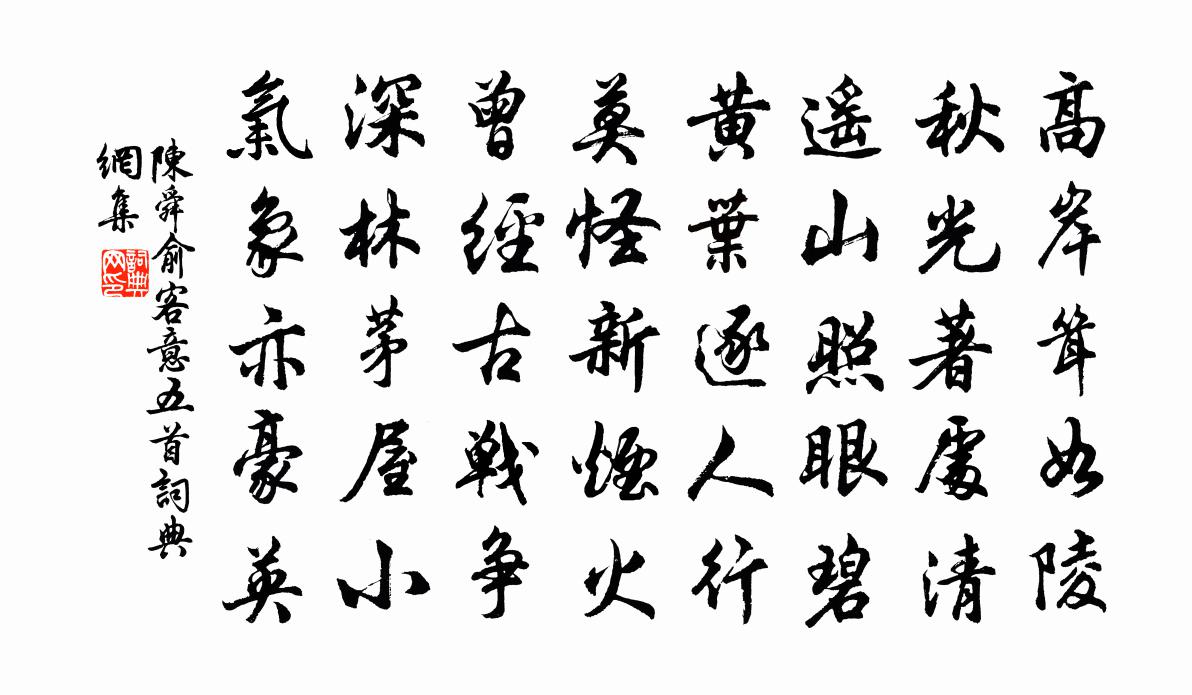 高岸耸如陵
秋光著處清
遥山照眼碧
黄葉逐人行
莫怪新煙火
曾經古戦争
深林茅屋小
氣象亦豪英
陳舜俞客意五首詞典
網集
詞典
网印